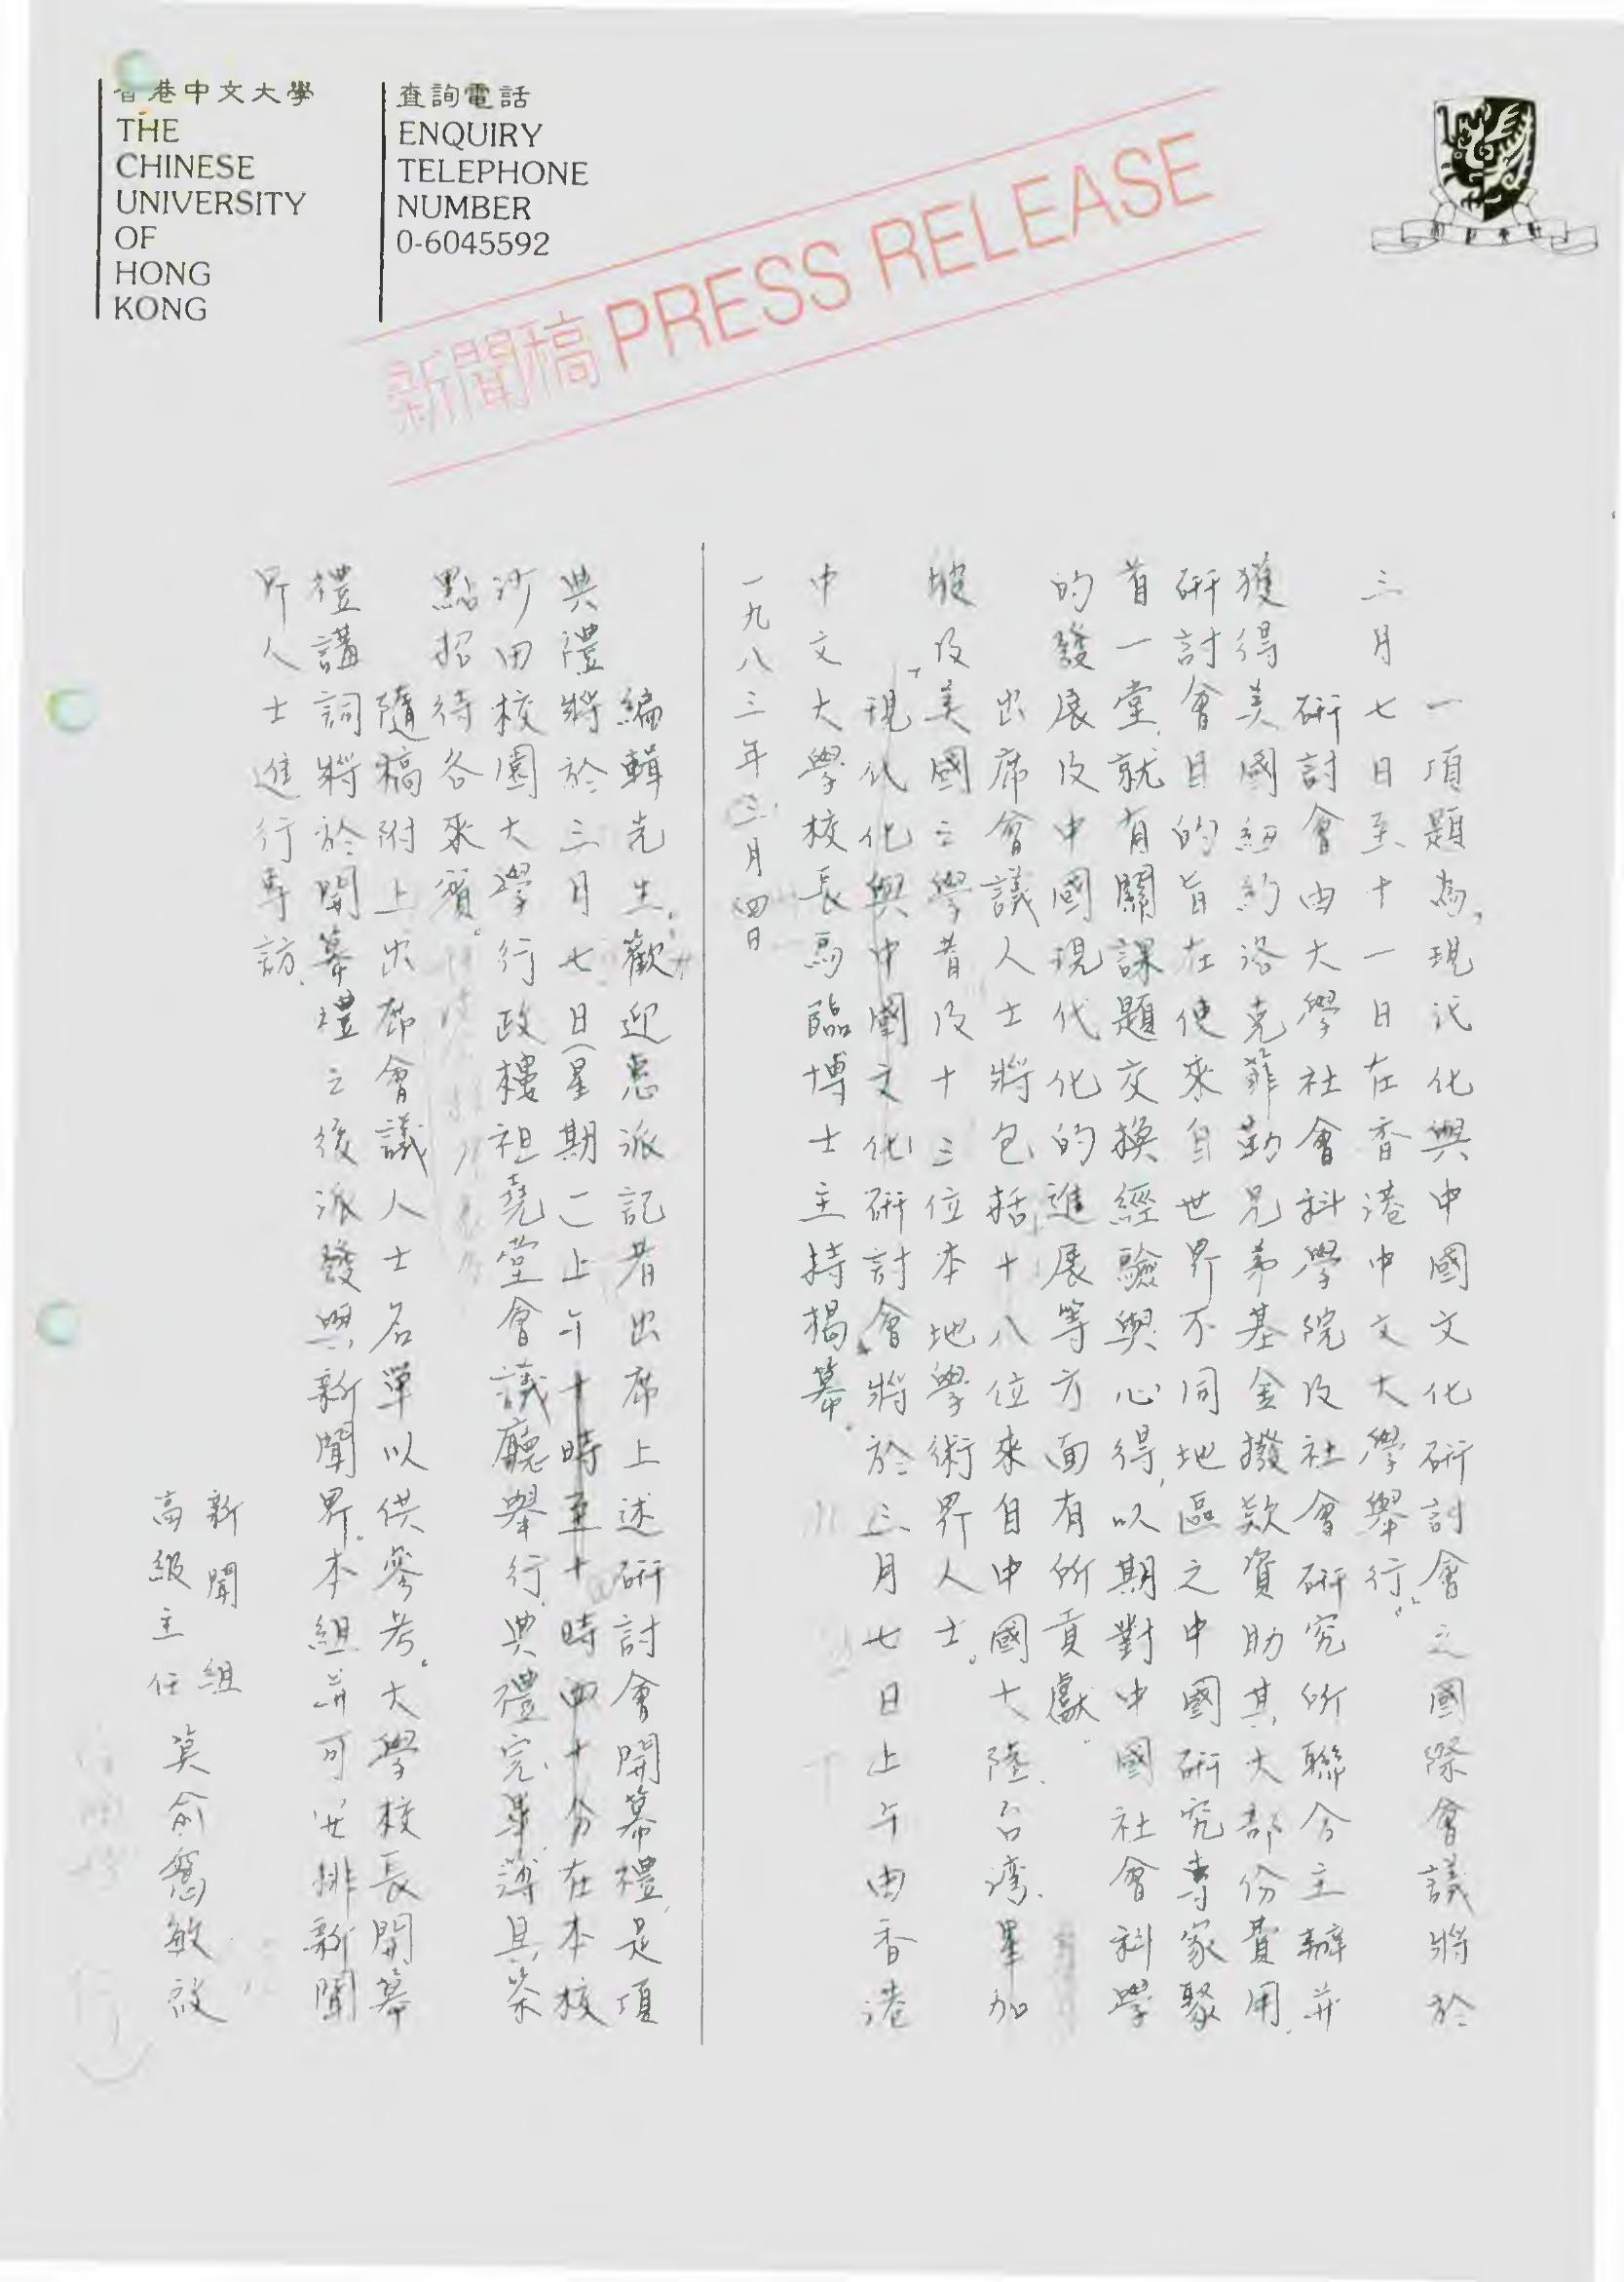 香港中文大學
THE
CHINESE
UNIVERSITY
OF
HONG
KONG
查詢電話
ENQUIRY
TELEPHONE
NUMBER
0-6045592
新聞稿 PRESS RELEASE
一項題為「現代化與中國文化研討會」之國際會議將於
三月七日至十一日在香港中文大學舉行。
研討會由大學社會科學院及社會研究所聯合主辦并
獲得美國紐約洛克菲勒兄弟基金撥款資助其大部份費用。
研討會目的旨在使來自世界不同地區之中國研究專家聚
首一堂,就有關課題交換經驗與心得,以期對中國社會科學
的發展及中國現代化的進展等方面有所貢獻。
出席會議人士將包括十八位來自中國大陸、台灣、星加
坡及美國之學者及十三位本地學術界人士。
「現代化與中國文化」研討會將於三月七日上午由香港
中文大學校長馬臨博士主持揭幕。
一九八三年三月四日
編輯先生:歡迎惠派記者出席上述研討會開幕禮,是項
典禮將於三月七日(星期一)上午十時至十時四十分在本校
沙田校園大學行政樓祖堯堂會議廳舉行。典禮完畢,薄具茶
點招待各來賓。
隨稿附上出席會議人士名單以供參考。大學校長開幕
禮講詞將於開幕禮之後派發與新聞界。本組并可安排新聞
界人士進行專訪。
新聞組
高級主任 俞 敏啟